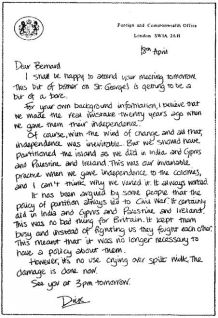 Foreign and Commonwealth Office
London SW1A 2AH
18th April
Dear Bernard
I shall be happy to attend your meeting tomorrow.
This bit of bother on St George's is getting to be
a bit of a bore.
For your own background information, I believe that
we made the real mistake twenty years ago when
we gave them their independence.
Of course, with the wind of change, and all that,
independence was inevitable. But we should have
partitioned the island as we did in India and Cyprus
and Palestine and Ireland. This was our invariable
practice when we gave independence to the colonies,
and I can't think why we varied it. It always worked.
It has been argued by some people that the
policy of partition always led to Civil War. It certainly
did in India and Cyprus and Palestine and Ireland.
This was no bad thing for Britain. It kept them
busy and instead of fighting us they fought each other.
This meant that it was no longer necessary to
have a policy about them.
However, it's no use crying over spilt milk. The
damage is done now.
See you at 3pm tomorrow.